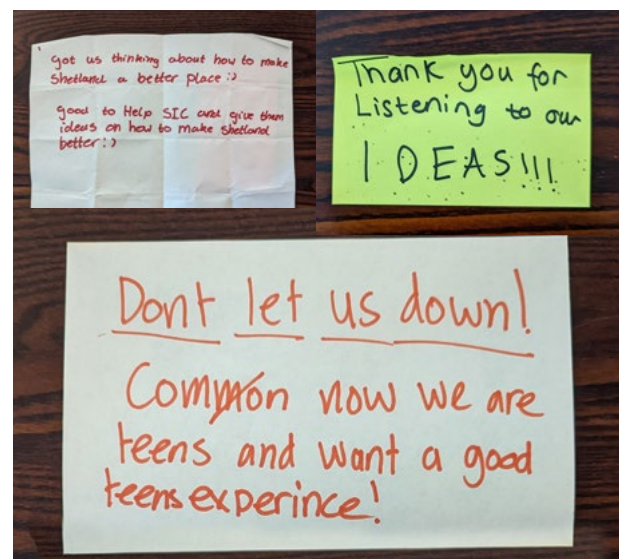 Got us thinking about how to make
Shetland a better place :)
good to Help SIC and give them
ideas on how to make Shetland
better :)
Thank you for
Listening to our
IDEAS!!!
Dont let us down!
Common now we are
teens and want a good
teens experince!